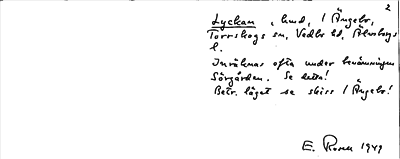 2
Lyckan, hmd, i Ängebo,
Torrskogs sn, Vedbo hd, Älvsborgs
l.
Inräknas ofta under benämningen
Sörgården. Se detta!
Betr. läget se skiss i Ängebo!
E. Rosen 1949